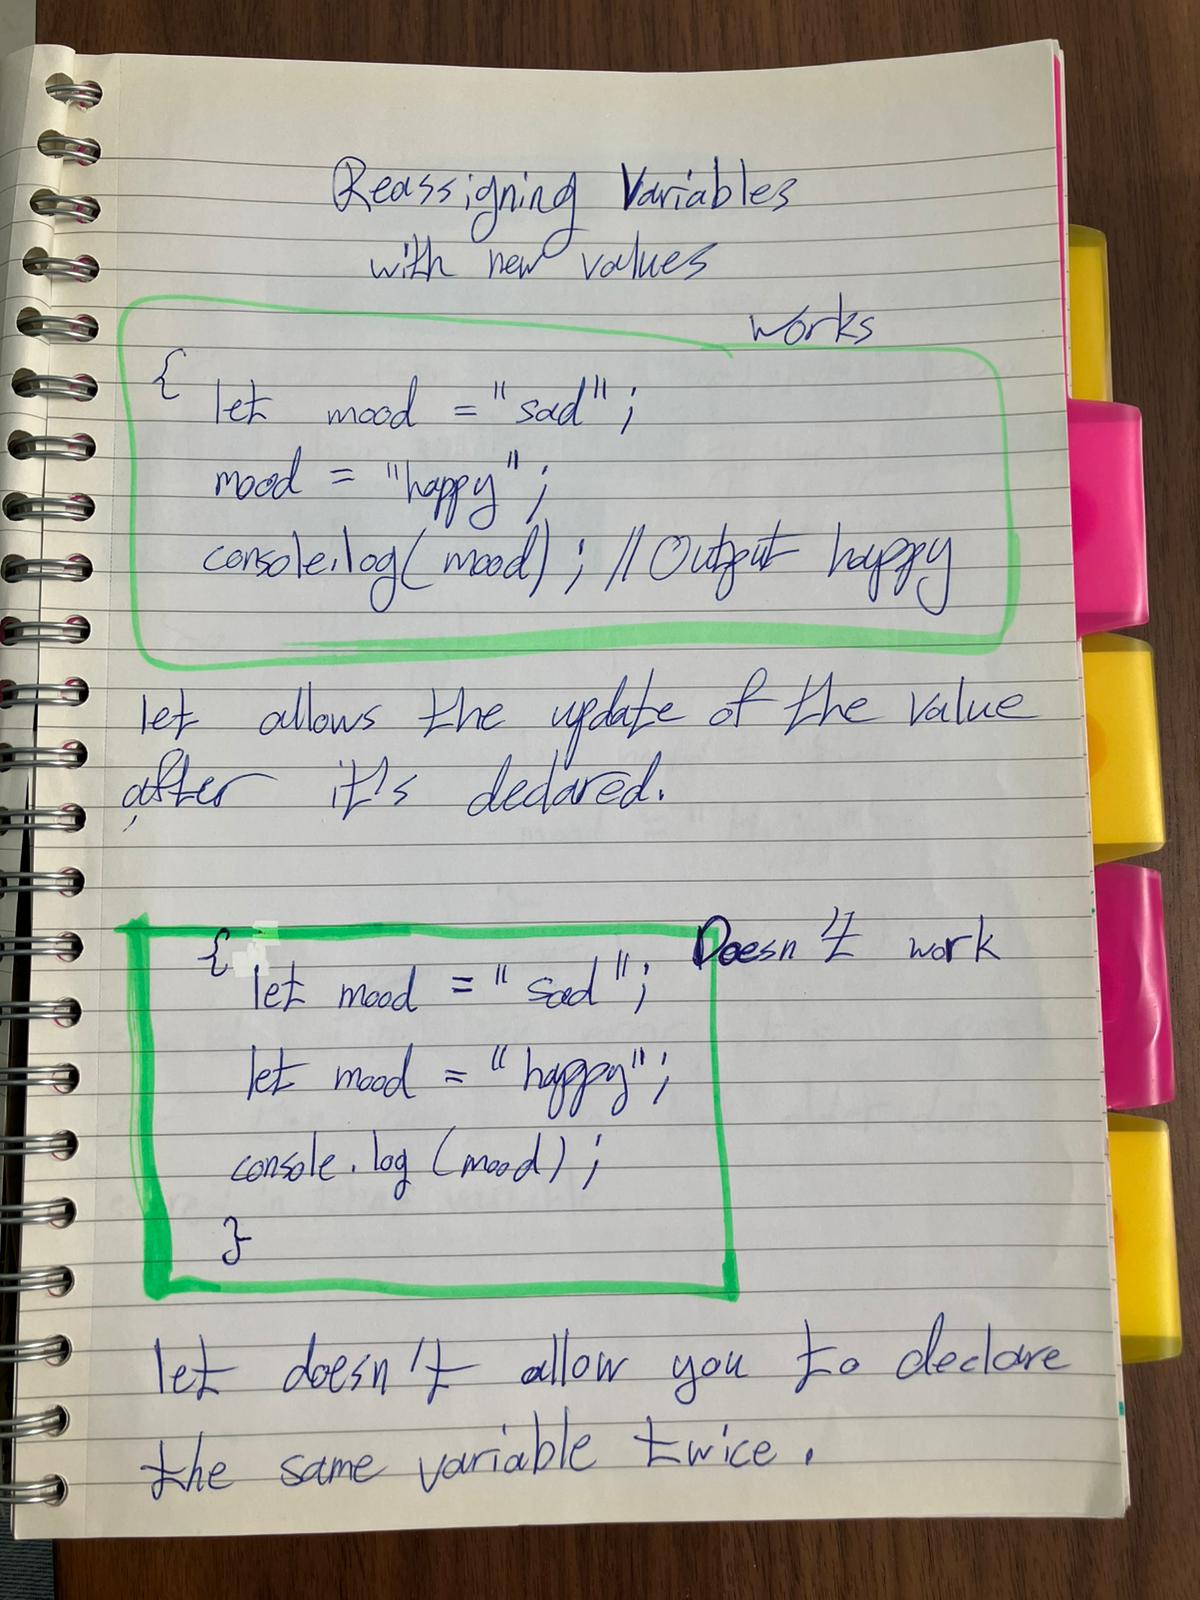 Reassigning Variables
with new values
works
{
let mood = "sad";
mood = "happy";
console.log( mood) ; // Output happy
let allows the update of the value
after it's declared.
Doesn't work
{
let mood = "sad";
let mood = "happy";
console.log (mood) ;
}
let doesn't allow you to declare
the same variable twice.